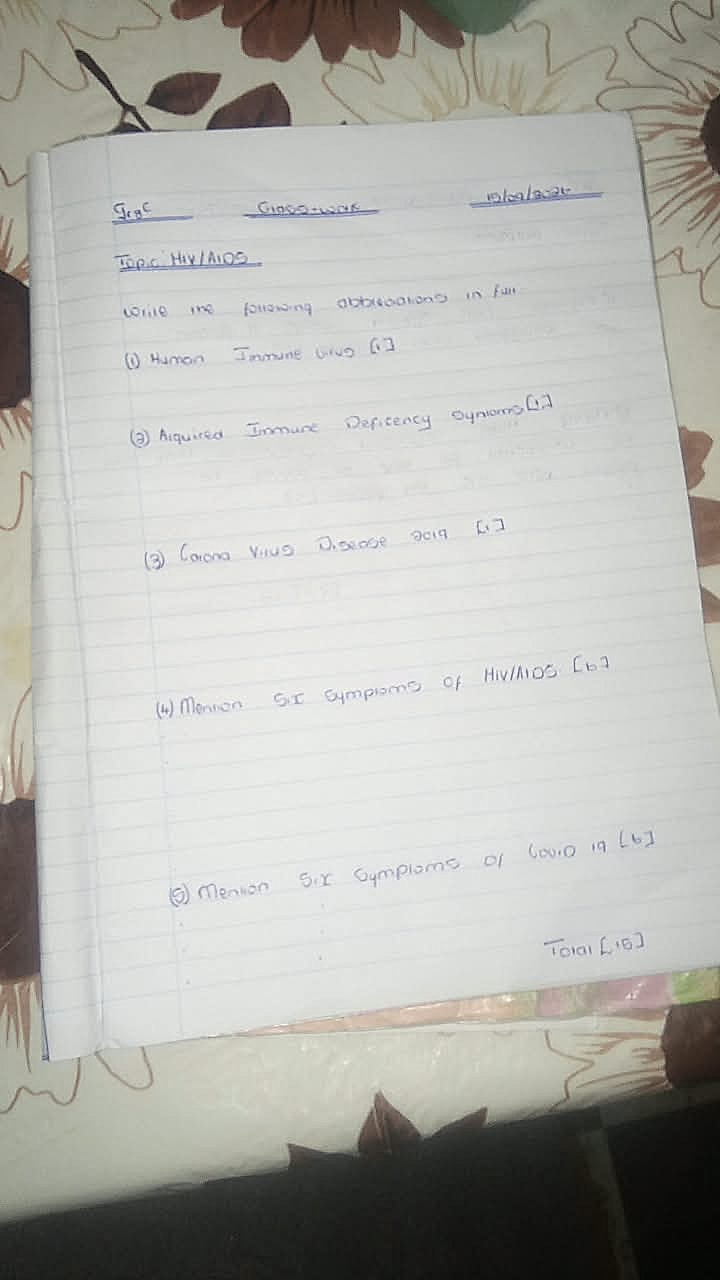 Gr8C Class-work
Topic: HIV/AIDS
Write the following abbreviations in full
(1) Human Immune Virus [1]
(2) Acquired Immune Deficency Syntoms [1]
(3) Corona Virus Disease 2019 [1]
(4) Mention Six Symptoms Of HIV/AIDS [6]
(5) Mention Six Symptoms Of Covid 19 [6]
Total [15]